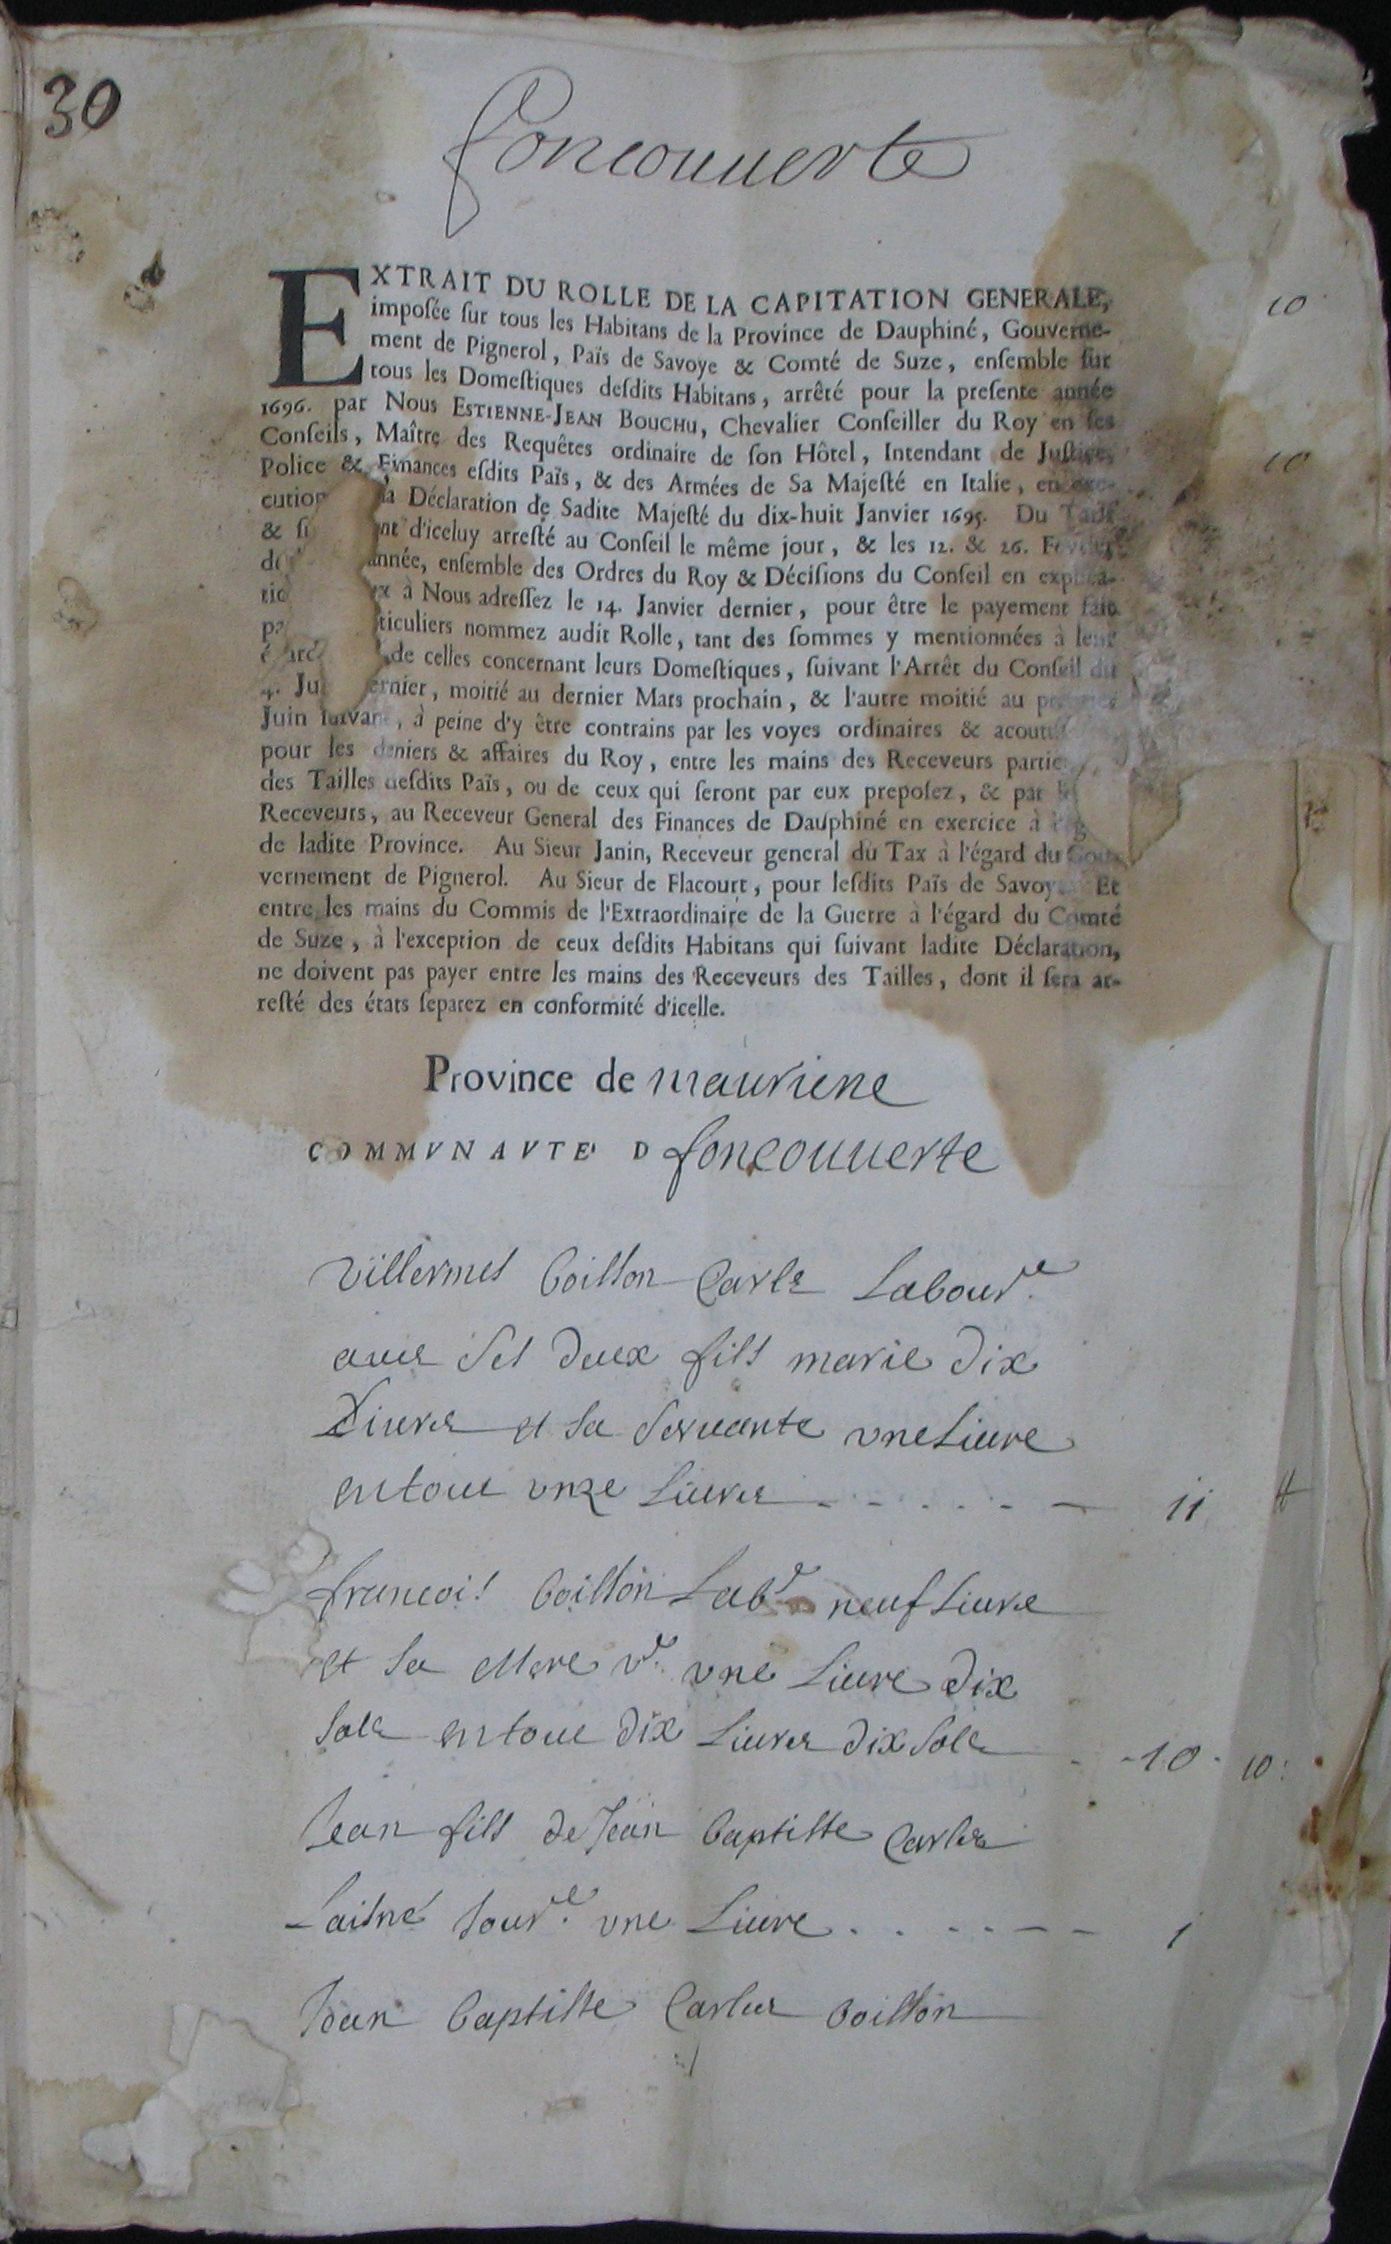 30
foncouuerte
EXTRAIT DU ROLLE DE LA CAPITATION GENERALE,
imposée sur tous les Habitans de la Province de Dauphiné, Gouverne-
ment de Pignerol, Païs de Savoye & Comté de Suze, ensemble sur
tous les Domestiques desdits Habitans, arrêté pour la presente année
1696. par Nous ESTIENNE-JEAN BOUCHU, Chevalier Conseiller du Roy en ses
Conseils, Maître des Requêtes ordinaire de son Hôtel, Intendant de Justice,
Police & Finances esdits Païs, & des Armées de Sa Majesté en Italie, en exe-
cution la Déclaration de Sadite Majesté du dix-huit Janvier 1695. Du Tarif
& d'iceluy arresté au Conseil le même jour, & les 12. & 26. Février
année, ensemble des Ordres du Roy & Décisions du Conseil en explica-
à Nous adressez le 14. Janvier dernier, pour être le payement fait
ticuliers nommez audit Rolle, tant des sommes y mentionnées à leur
de celles concernant leurs Domestiques, suivant l'Arrêt du Conseil du
4. ernier, moitié au dernier Mars prochain, & l'autre moitié au premier
Juin suivant, à peine d'y être contrains par les voyes ordinaires & acoutu
pour les deniers & affaires du Roy, entre les mains des Receveurs partic
des Tailles desdits Païs, ou de ceux qui seront par eux preposez, & par
Receveurs, au Receveur General des Finances de Dauphiné en exercice à
de ladite Province. Au Sieur Janin, Receveur general du Tax à l'égard du Gou-
vernement de Pignerol. Au Sieur de Flacourt, pour lesdits Païs de Savoye. Et
entre les mains du Commis de l'Extraordinaire de la Guerre à l'égard du Comté
de Suze, à l'exception de ceux desdits Habitans qui suivant ladite Déclaration,
ne doivent pas payer entre les mains des Receveurs des Tailles, dont il sera ar-
resté des états separez en conformité d'icelle.
10
10
Province de mauriene
COMMVNAVTE' D foncouuerte
Villermet boisson Carle Labour.e
auec ses deux fils marie dix
Liures et sa seruante une Liure
en tout unze Liures - - - - - - 11 ₶
francois boisson Labr neuf Liure
et sa Mere ve. une Liure dix
sols en tout dix Liures dix sols - - 10 - 10:
Jean fils de Jean baptiste Carles
Laisné Jour.e une Liure - - - - - - 1
Jean baptiste Carles boisson